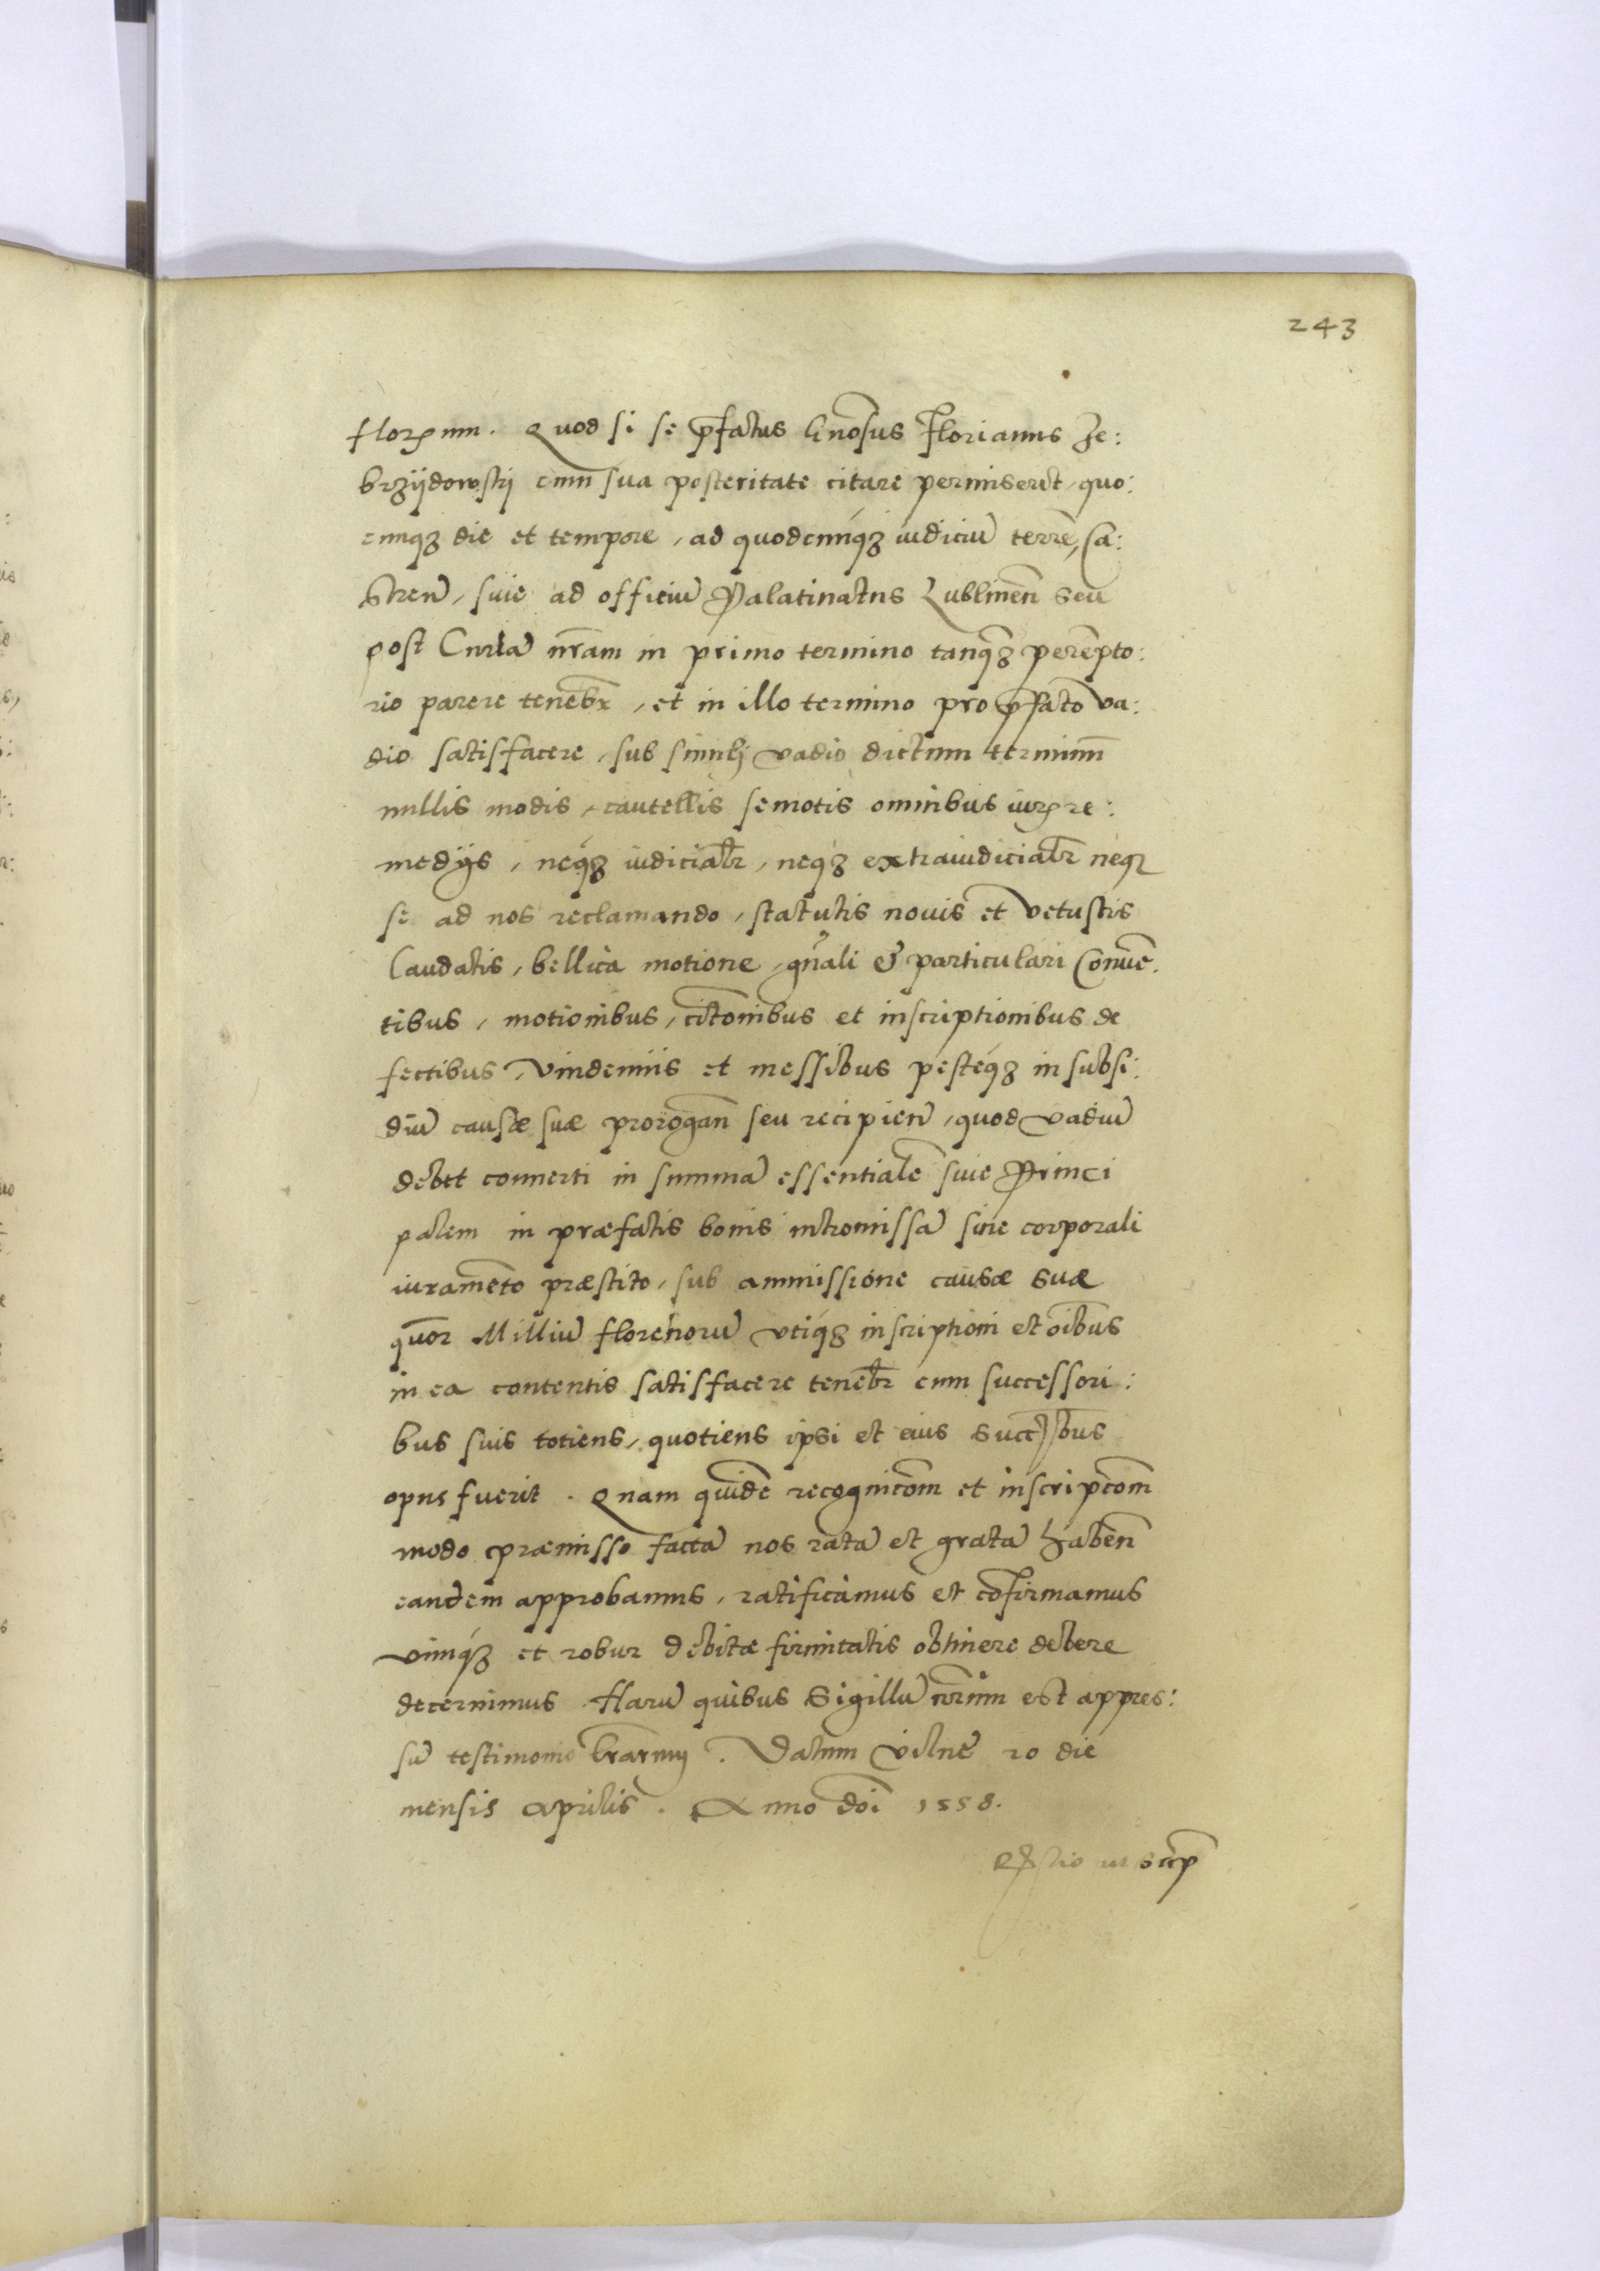 243
florenum. Quod si se p̄fatus Gn̄osus Florianus Ze:
brzÿdowskÿ cum sua posteritate citare permiserit, quo:
cunq₃ die et tempore, ad quodcunq₃ iudiciū terrē, Ca:
stren̄, siue ad officiū Palatinatus Lublinen̄ seu
post Curiā nr̄am in primo termino tanq₃ perēpto:
rio parere teneb̄r, et in illo termino pro p̄fato va:
dio satisfacere, sub simili vadio dictum terminū
nullis modis, cautellis semotis omnibus iuris re:
medÿs, neq₃ iudicialr̄, neq₃ extraiudicialr̄ neq₃
se ad nos reclamando, statutis nouis et vetustis
laudatis, bellica motione, gn̄ali & particulari Conuē.
tibus, motionibus, cit̄onibus et inscriptionibus de
fectibus, vindemiis et messibus pesteq₃ in subsi:
diū causæ suæ prorogan̄ seu recipien̄, quod vadiū
debet conuerti in summā essentialē siue Princi
palem in præfatis bonis intromissā siue corporali
iuramēto præstito, sub ammissione causæ suæ
quor̄ Milliū florenorū utiq₃ inscriptioni et oībus
in ea contentis satisfacere teneb̄r cum successori:
bus suis totiens, quotiens ipsi et eius succ̄ribus
opus fuerit. Quam quidē recognitōm et inscriptōm
modo præmisso factā nos ratā et gratā haben̄
eandem approbamus, ratificamus et cōfirmamus
vimq₃ et robur debitæ firmitatis obtinere debere
decernimus. Harū quibus Sigillū nr̄um est appres:
sū testimonio l̄rarum. Datum Vilnē 20 die
mensis Aprilis. Anno dōi 1558.